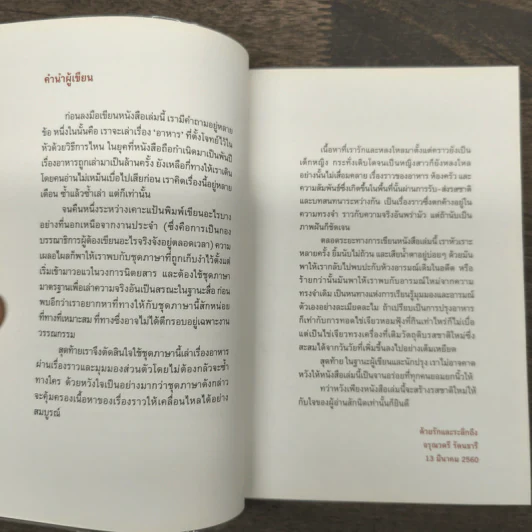 คำนำผู้เขียน
ก่อนลงมือเขียนหนังสือเล่มนี้ เรามีคำถามอยู่หลาย
ข้อ หนึ่งในนั้นคือ เราจะเล่าเรื่อง "อาหาร" ที่ตั้งโจทย์ไว้ใน
หัวด้วยวิธีการไหน ในยุคที่หนังสือถือกำเนิดมาเป็นพันปี
เรื่องอาหารถูกเล่ามาเป็นล้านครั้ง ยังเหลือกี่ทางให้เราเดิน
โดยคนอ่านไม่เหม็นเบื่อไปเสียก่อน เราคิดเรื่องนี้อยู่หลาย
เดือน ซ้ำแล้วซ้ำเล่า แต่ก็เท่านั้น
จนคืนหนึ่งระหว่างเคาะแป้นพิมพ์เขียนอะไรบาง
อย่างที่นอกเหนือจากงานประจำ (ซึ่งคือการเป็นกอง
บรรณาธิการผู้ต้องเขียนอะไรจริงจังอยู่ตลอดเวลา) ความ
เผลอไผลก็พาให้เราพบกับชุดภาษาที่ถูกเก็บงำไว้ตั้งแต่
เริ่มเข้ามาวอแวในวงการนิตยสาร และต้องใช้ชุดภาษา
มาตรฐานเพื่อเล่าความจริงอันเป็นสรณะในฐานะสื่อ ก่อน
พบอีกว่าเราอยากหาที่ทางให้กับชุดภาษานี้สักหน่อย
ที่ทางที่เหมาะสม ที่ทางซึ่งอาจไม่ได้ตีกรอบอยู่เฉพาะงาน
วรรณกรรม
สุดท้ายเราจึงตัดสินใจใช้ชุดภาษานี้เล่าเรื่องอาหาร
ผ่านเรื่องราวและมุมมองส่วนตัวโดยไม่ต้องกลัวจะซ้ำ
ทางใคร ด้วยหวังใจเป็นอย่างมากว่าชุดภาษาดังกล่าว
จะคุ้มครองเนื้อหาของเรื่องราวให้เคลื่อนไหลได้อย่าง
สมบูรณ์
เนื้อหาที่เรารักและหลงใหลมาตั้งแต่คราวยังเป็น
เด็กหญิง กระทั่งเติบโตจนเป็นหญิงสาวก็ยังหลงใหล
อย่างนั้นไม่เสื่อมคลาย เรื่องราวของอาหาร ห้องครัว และ
ความสัมพันธ์ซึ่งเกิดขึ้นในพื้นที่นั้นผ่านการรับ-ส่งรสชาติ
และบทสนทนาระหว่างกัน เป็นเรื่องราวซึ่งตกค้างอยู่ใน
ความทรงจำ ราวกับความจริงอันพร่ามัว แต่ยังนับเป็น
ภาพฝันก็ชัดเจน
ตลอดระยะทางการเขียนหนังสือเล่มนี้ เราหัวเราะ
หลายครั้ง ยิ้มนับไม่ถ้วน และเสียน้ำตาอยู่บ่อยๆ ด้วยมัน
พาให้เรากลับไปพบปะกับห้วงอารมณ์เดิมในอดีต หรือ
ร้ายกว่านั้นมันพาให้เราพบกับอารมณ์ใหม่จากความ
ทรงจำเดิม เป็นหนทางแห่งการเรียนรู้มุมมองและอารมณ์
ตัวเองอย่างละเมียดละไม ถ้าเปรียบเป็นการปรุงอาหาร
ก็เท่ากับการทอดไข่เจียวหอมฟุ้งที่กินเท่าไหร่ก็ไม่เบื่อ
แต่เป็นไข่เจียวจากเครื่องที่เติมวัตถุดิบรสชาติใหม่ซึ่ง
สะสมได้จากวันวัยที่เพิ่มขึ้นลงไปอย่างเต็มเหยียด
สุดท้าย ในฐานะผู้เขียนและนักปรุง เราไม่อาจคาด
หวังให้หนังสือเล่มนี้เป็นจานอร่อยที่ทุกคนยอมยกนิ้วให้
ทว่าหวังเพียงหนังสือเล่มนี้จะสร้างรสชาติใหม่ให้
กับใจของผู้อ่านสักนิดเท่านั้นก็ยินดี
ด้วยรักและระลึกถึง
อรุณวตรี รัตนธารี
13 มีนาคม 2560